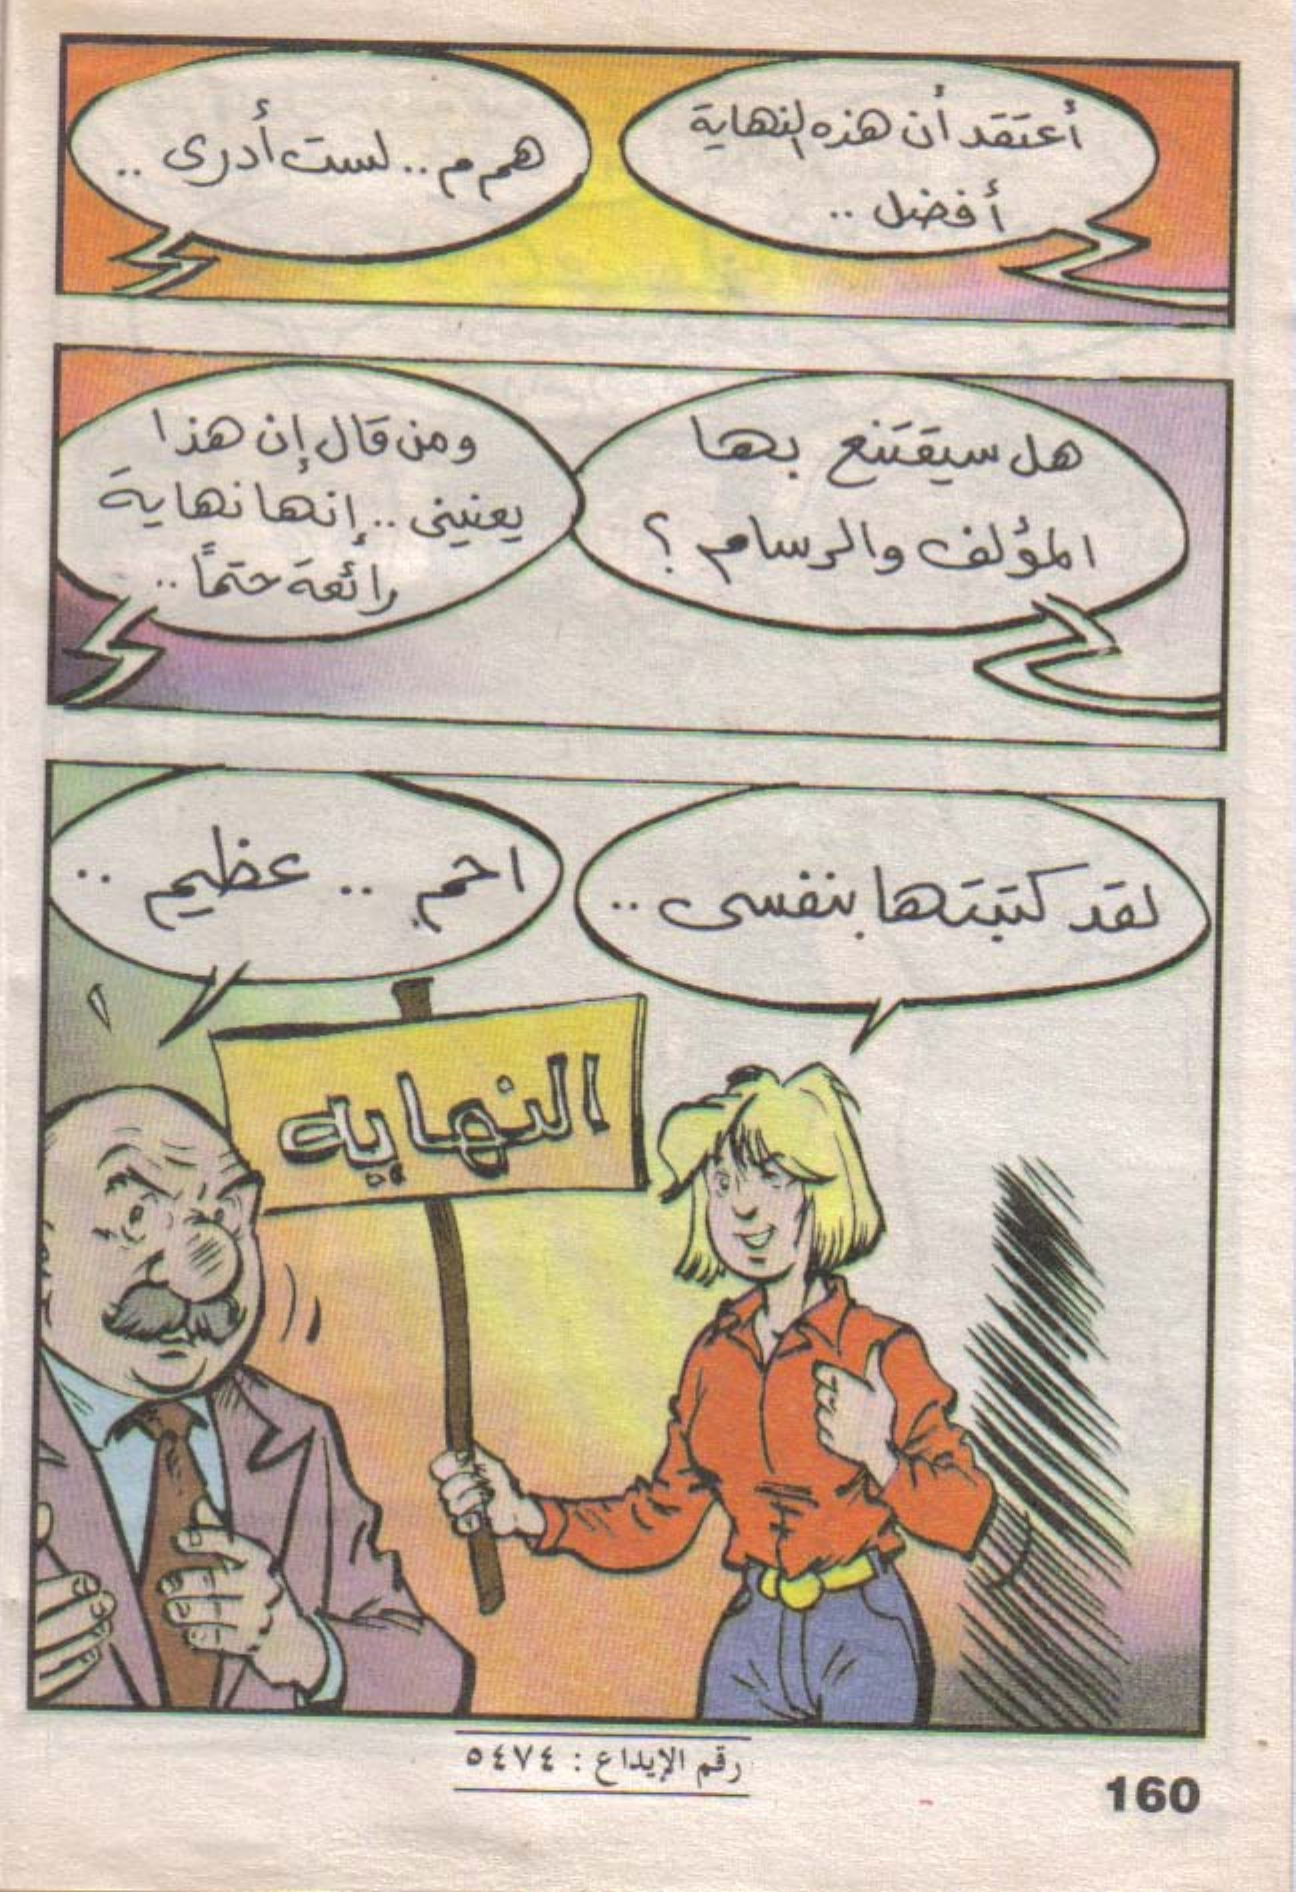 أعتقد أن هذه النهاية
أفضل ..
هم م .. لست أدرى ..
هل سيقتنع بها
المؤلف والرسام ؟
ومن قال إن هذا
يعنينى .. إنها نهاية
رائعة حتمًا ..
لقد كتبتها بنفسى ..
احم .. عظيم ..
النهايه
رقم الإيداع : ٥٤٧٤
160